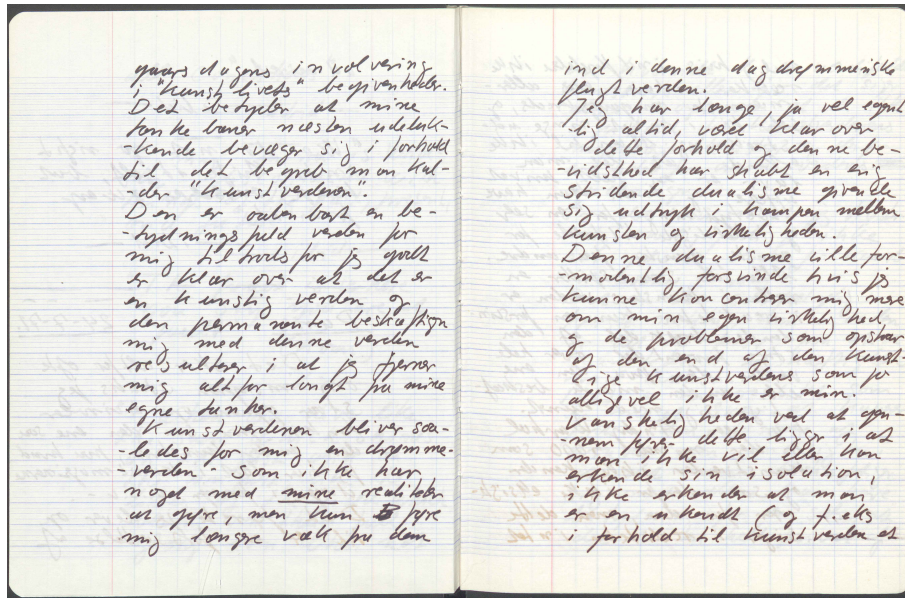 gaars dagens involvering
i "kunst livets" begivenheder.
Det betyder at mine
tanke baner næsten udeluk-
-kende bevæger sig i forhold
til det begreb man kal-
-der "kunstverdenen".
Den er aabenbart en be-
-tydningsfuld verden for
mig til trods for jeg godt
er klar over at det er
en kunstig verden og
den permanente beskæftigen
mig med denne verden
resulterer i at jeg fjerner
mig alt for langt fra mine
egne tanker.
Kunstverdenen bliver saa-
-ledes for mig en drømme-
-verden - som ikke har
noget med mine realiteter
at gøre, men kun føre
mig længre væk fra dem
ind i denne dagdrømmeriske
flugtverden.
Jeg har længe, ja vel egent
-lig altid, været klar over
dette forhold og denne be-
-vidsthed har skabt en evig
stridende dualisme givende
sig udtryk i kampen mellem
kunsten og virkeligheden.
Denne dualisme ville for-
-modentlig forsvinde hvis jeg
kunne koncentrere mig mere
om min egen virkelighed,
og de problemer som opstaar
af den end af den kunst-
-lige kunstverdens som jo
alligevel ikke er min.
Vanskeligheden ved at gen-
-nem føre dette ligger i at
man ikke vil eller kan
erkende sin isolation,
ikke erkender at man
er en ukendt (og f.eks
i forhold til kunstverden et